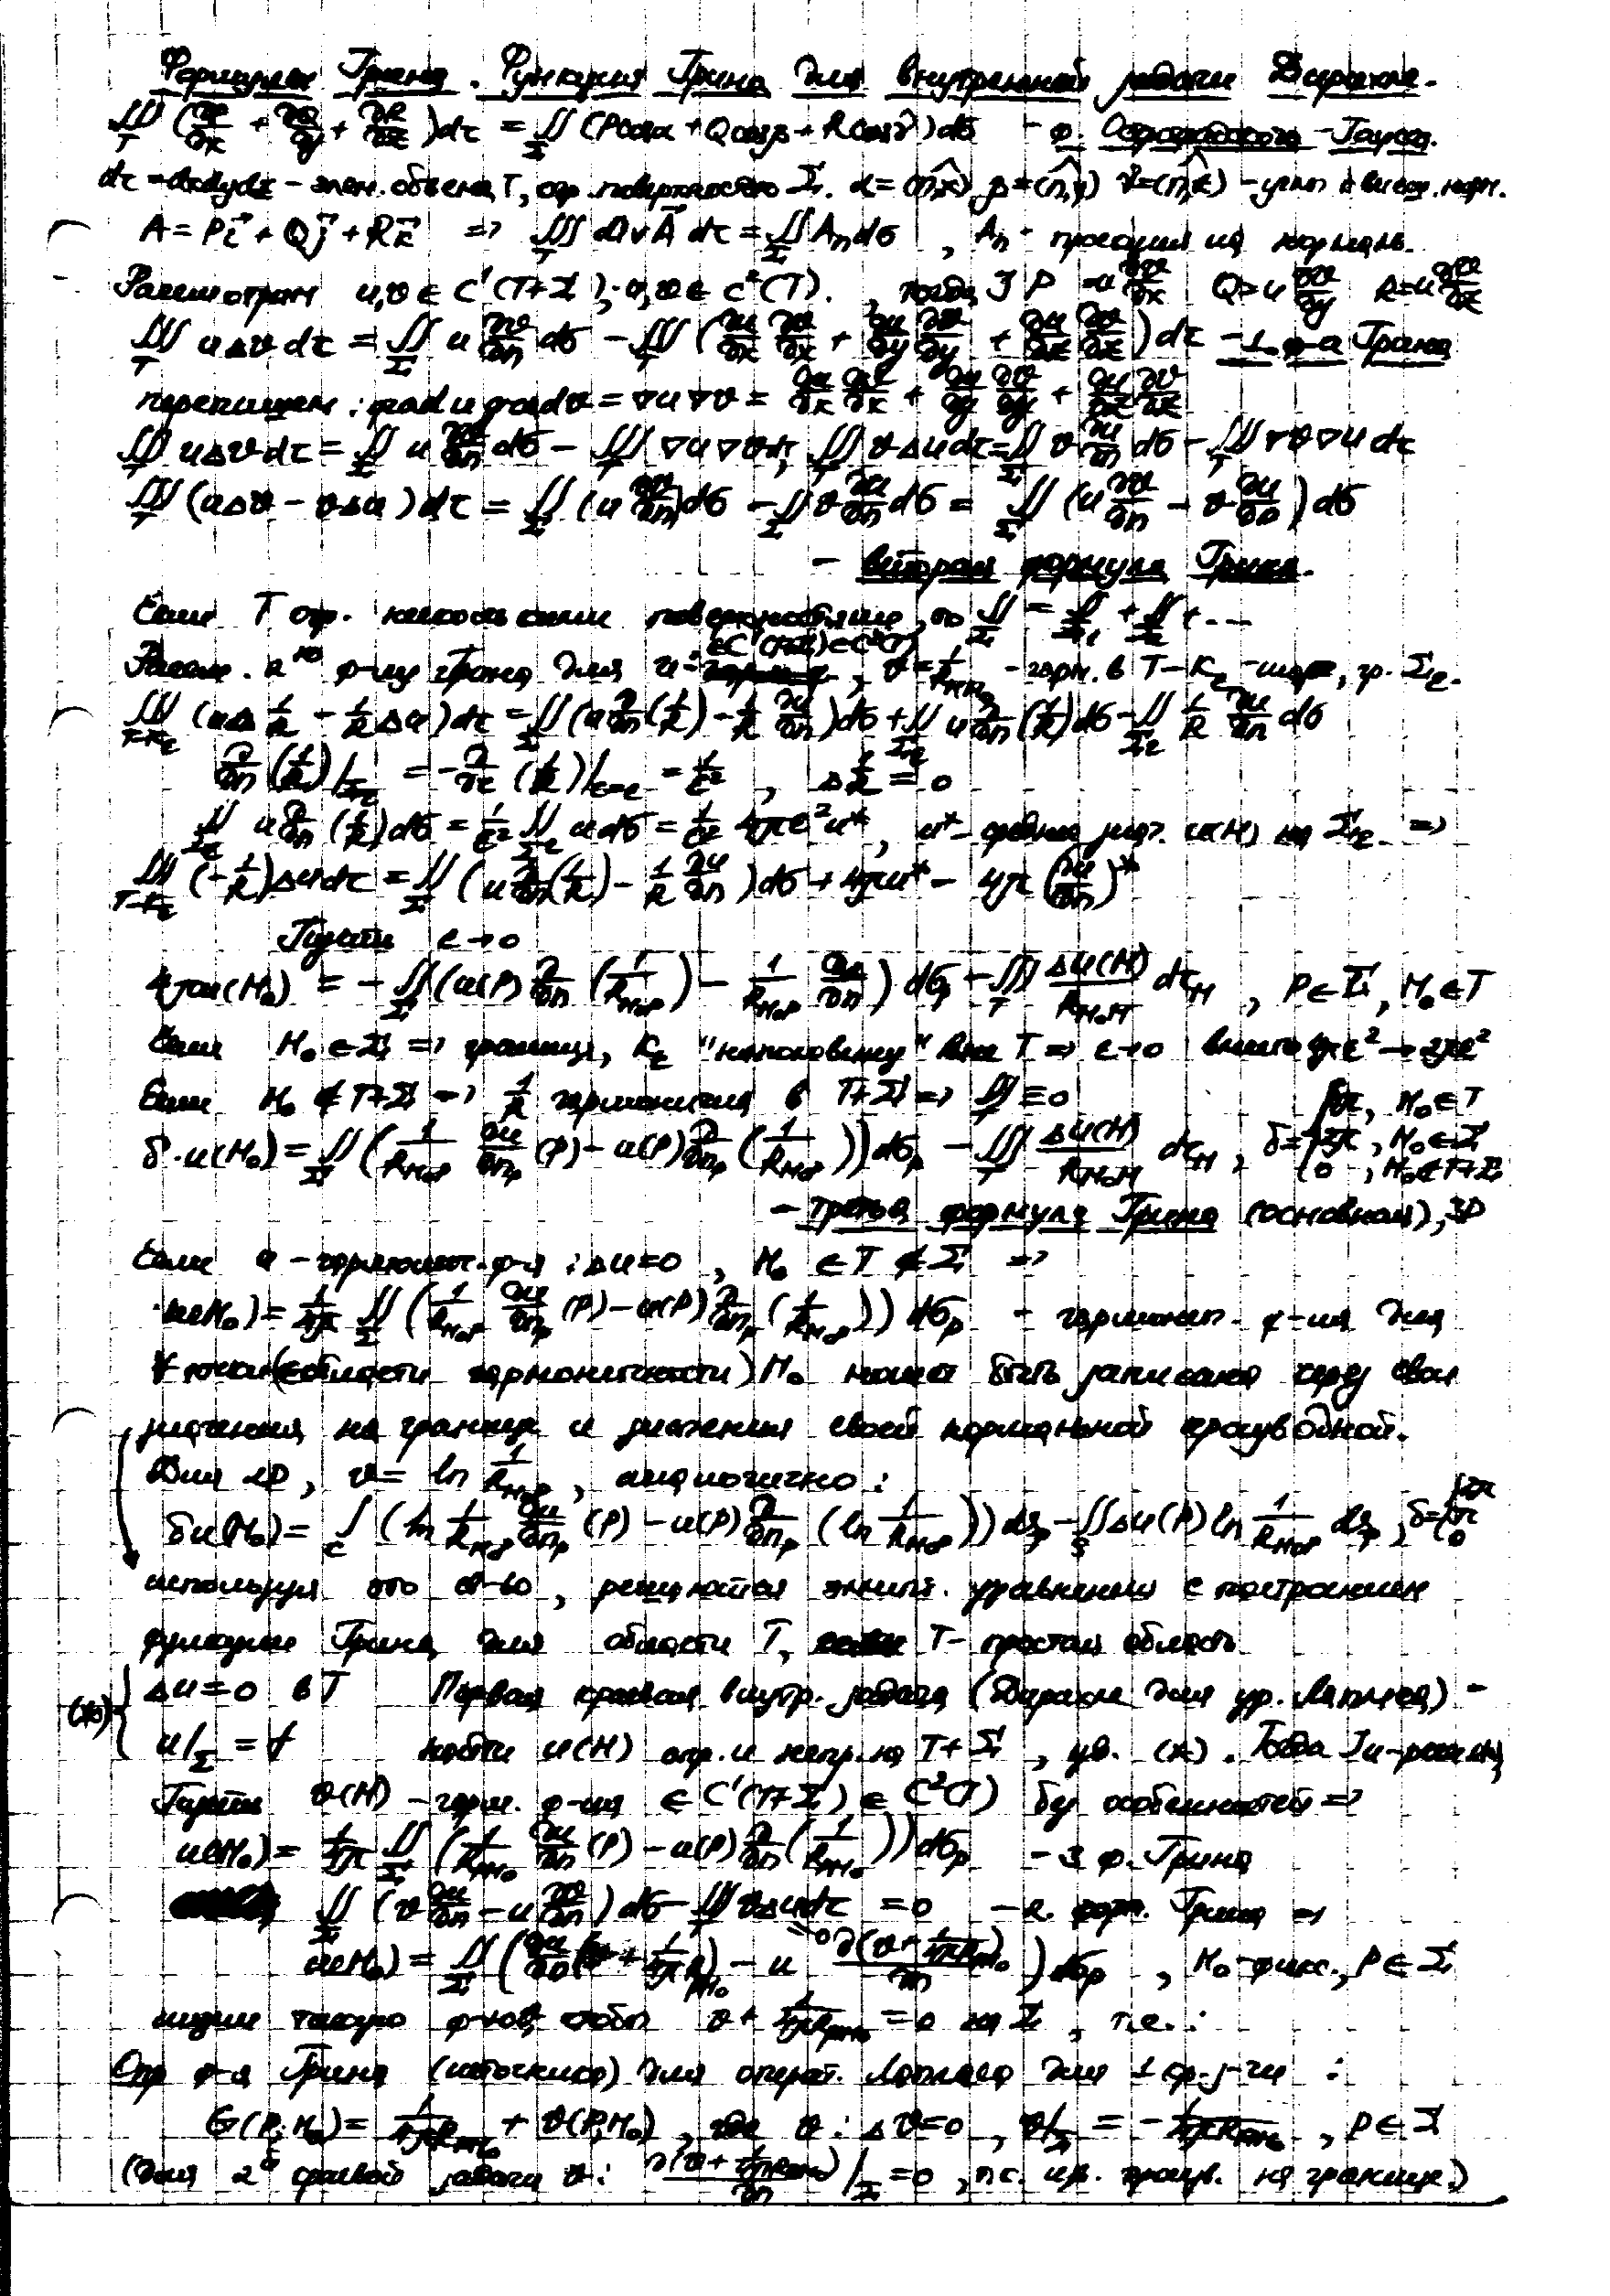 Формулы Грина. Функция Грина для внутренней задачи Дирихле.
∭_T (∂P/∂x + ∂Q/∂y + ∂R/∂z) dτ = ∬_Σ (Pcosα + Qcosβ + Rcosγ) dσ – ф. Остроградского – Гаусса.
dτ = dxdydz – элем. объема T, огр. поверхностью Σ. α=(n,x) β=(n,y) γ=(n,z) – углы с внеш. норм.
A = Pi + Qj + Rk => ∭_T div A dτ = ∬_Σ A_n dσ , A_n - проекция на нормаль.
Рассмотрим u,v ∈ C'(T+Σ); u,v ∈ C²(T). , тогда P = u ∂v/∂x Q = u ∂v/∂y R = u ∂v/∂z
∭_T uΔv dτ = ∬_Σ u ∂v/∂n dσ – ∭_T (∂u/∂x ∂v/∂x + ∂u/∂y ∂v/∂y + ∂u/∂z ∂v/∂z) dτ – 1 ф-а Грина
перепишем: grad u grad v = ∇u∇v = ∂u/∂x ∂v/∂x + ∂u/∂y ∂v/∂y + ∂u/∂z ∂v/∂z
∭_T uΔv dτ = ∬_Σ u ∂v/∂n dσ – ∭_T ∇u∇v dτ, ∭_T vΔu dτ = ∬_Σ v ∂u/∂n dσ – ∭_T ∇v∇u dτ
∭_T (uΔv – vΔu) dτ = ∬_Σ (u ∂v/∂n) dσ – ∬_Σ v ∂u/∂n dσ = ∬_Σ (u ∂v/∂n – v ∂u/∂n) dσ
– вторая формула Грина.
Если T огр. несколькими поверхностями, то ∬_Σ = ∬_Σ₁ + ∬_Σ₂ + ...
Рассм. 2ую ф-лу Грина для u: ∈C'(T+Σ) ∈C²(T), v = 1/R_MM₀ – гарм. в T – K_ε - шар, гр. Σ_ε.
∭_T-K_ε (uΔ 1/R – 1/R Δu) dτ = ∬_Σ (u ∂/∂n (1/R) – 1/R ∂u/∂n) dσ + ∬_Σ_ε u ∂/∂n (1/R) dσ – ∬_Σ_ε 1/R ∂u/∂n dσ
∂/∂n (1/R)|_Σ_ε = –∂/∂r (1/r)|_r=ε = 1/ε² , Δ 1/R = 0
∬_Σ_ε u ∂/∂n (1/R) dσ = 1/ε² ∬_Σ_ε u dσ = 1/ε² 4πε² u* , u* – среднее знач. u(M) на Σ_ε =>
∭_T-K_ε (–1/R) Δu dτ = ∬_Σ (u ∂/∂n (1/R) – 1/R ∂u/∂n) dσ + 4πu* – 4πε (∂u/∂n)*
Пусть ε → 0
4πu(M₀) = – ∬_Σ (u(P) ∂/∂n (1/R_M₀P) – 1/R_M₀P ∂u/∂n) dσ_P – ∭_T Δu(M)/R_M₀M dτ_M , P∈Σ, M₀∈T
Если M₀ ∈ Σ => граница, K_ε "наполовину" вне T => ε→0 вместо 4πε² → 2πε²
Если M₀ ∉ T+Σ => 1/R гармонична в T+Σ => ∬ ≡ 0
δ·u(M₀) = ∬_Σ (1/R_M₀P ∂u/∂n_P (P) – u(P) ∂/∂n_P (1/R_M₀P)) dσ_P – ∭_T Δu(M)/R_M₀M dτ_M , δ = {4π, M₀∈T; 2π, M₀∈Σ; 0, M₀∉T+Σ
– третья формула Грина (основная), 3D
Если u – гармонич. ф-я : Δu=0 , M₀ ∈ T ∉ Σ =>
u(M₀) = 1/4π ∬_Σ (1/R_M₀P ∂u/∂n_P (P) – u(P) ∂/∂n_P (1/R_M₀P)) dσ_P – гармонич. ф-ия для
∀ точки (области гармоничности) M₀ может быть записана через свои
значения на границе и значения своей нормальной производной.
Для 2D , v = ln 1/R_M₀P , аналогично :
δu(M₀) = ∫_C (ln 1/R_M₀P ∂u/∂n_P (P) – u(P) ∂/∂n_P (ln 1/R_M₀P)) ds_P – ∬_S Δu(P) ln 1/R_M₀P ds_P , δ = {2π; π; 0
используя это св-во , решаются эллипт. уравнения с построением
функции Грина для области T, T – простая область
(*) { Δu=0 в T Первая краевая внутр. задача (Дирихле для ур. Лапласа) –
u|_Σ = f найти u(M) опр. и непр. на T+Σ , уд. (*).
Пусть v(M) – гарм. ф-ия ∈ C'(T+Σ) ∈ C²(T) без особенностей =>
u(M₀) = 1/4π ∬_Σ (1/R_PM₀ ∂u/∂n (P) – u(P) ∂/∂n (1/R_PM₀)) dσ_P – 3 ф. Грина
∬_Σ (v ∂u/∂n – u ∂v/∂n) dσ – ∭_T vΔu dτ = 0 – 2. форм. Грина =>
=0
u(M₀) = ∬_Σ (∂u/∂n (v + 1/4πR_PM₀) – u ∂(v + 1/4πR_PM₀)/∂n) dσ_P , M₀-фикс., P ∈ Σ
ищем такую ф-ю v, чтобы v + 1/4πR_PM₀ = 0 на Σ , т.е. :
Опр ф-я Грина (источника) для операт. Лапласа для 1 кр. з-чи :
G(P,M₀) = 1/4πR_PM₀ + v(P,M₀) , где v : Δv=0 , v|_Σ = – 1/4πR_PM₀ , P ∈ Σ
(для 2й краевой задачи v : ∂(v + 1/4πR_PM₀)/∂n |_Σ = 0 , т.е. произв. на границе.)